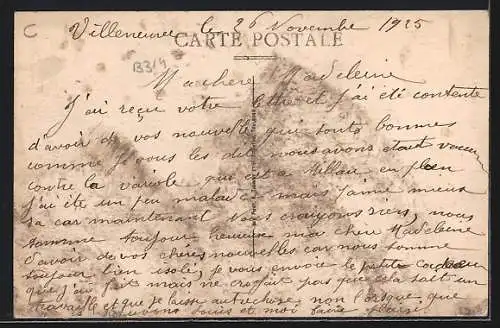 C
Villeneuve le 26 Novembre 1925
CARTE POSTALE
B314
Ma chere Madeleine
J'ai reçu votre lettre et j'ai été contente
d'avoir de vos nouvelle qui sont bonnes
comme je vous les dit nous avons etait
contre la variole que est a Millau, en plen
j'ai été un peu malade mais j'aime mieux
sa car maintenant nous craignons riens, nous
somme toujour heureuse ma chere Madeleine
d'avoir de vos chères nouvelles car nous somme
toujour bien isolé, je vous envoie le petite
que j'ai fait mais ne croyait pas que cela soit un
travaille et que je laisse autre chose, non lorsque que
nous et moi faire plaisir